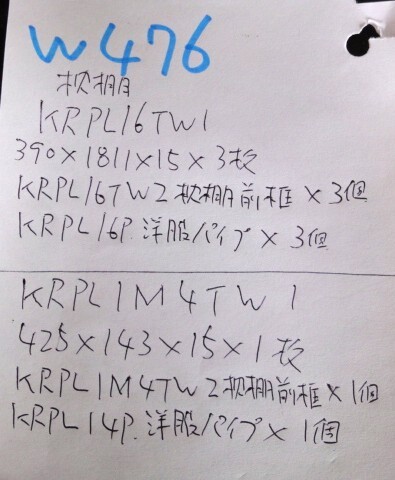 W476
枕棚
KRPL16TW1
390×1811×15×3枚
KRPL16TW2枕棚前框×3個
KRPL16P.洋服パイプ×3個
KRPL1M4TW1
425×143×15×1枚
KRPL1M4TW2枕棚前框×1個
KRPL14P.洋服パイプ×1個